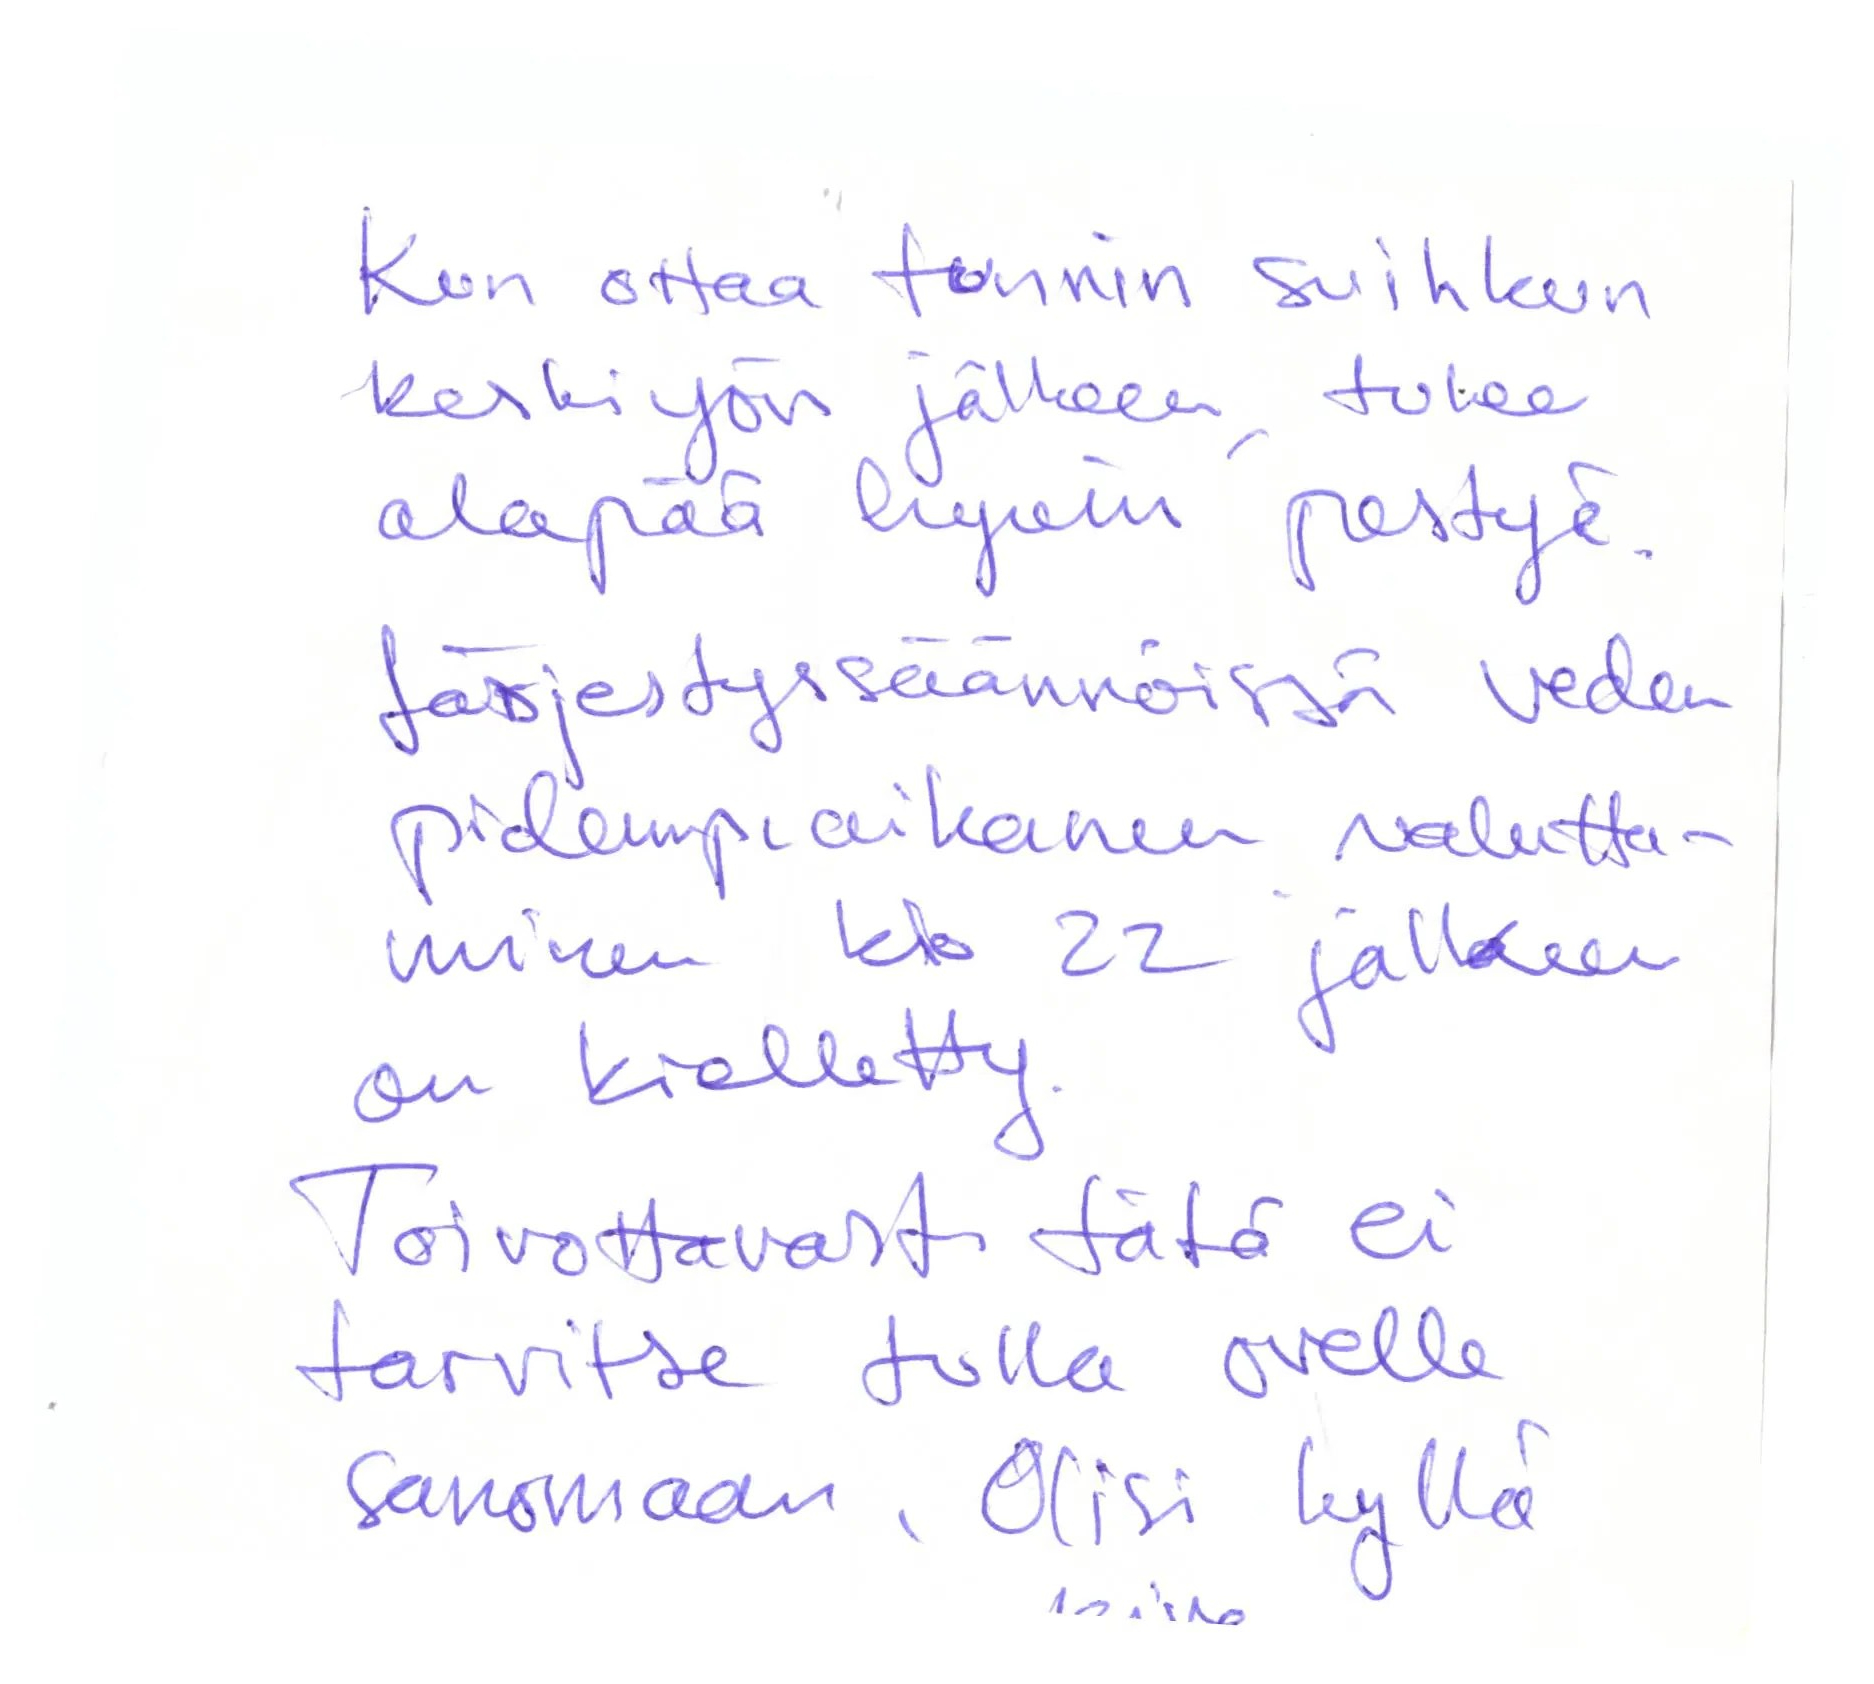 Kun ottaa tunnin suihkun
keskiyön jälkeen, tulee
alapää hyvin pestyä.
Järjestyssäännöissä veden
pidempiaikanen valutta-
minen klo 22 jälkeen
on kielletty.
Toivottavasti tätä ei
tarvitse tulla ovelle
sanomaan. Olisi kyllä